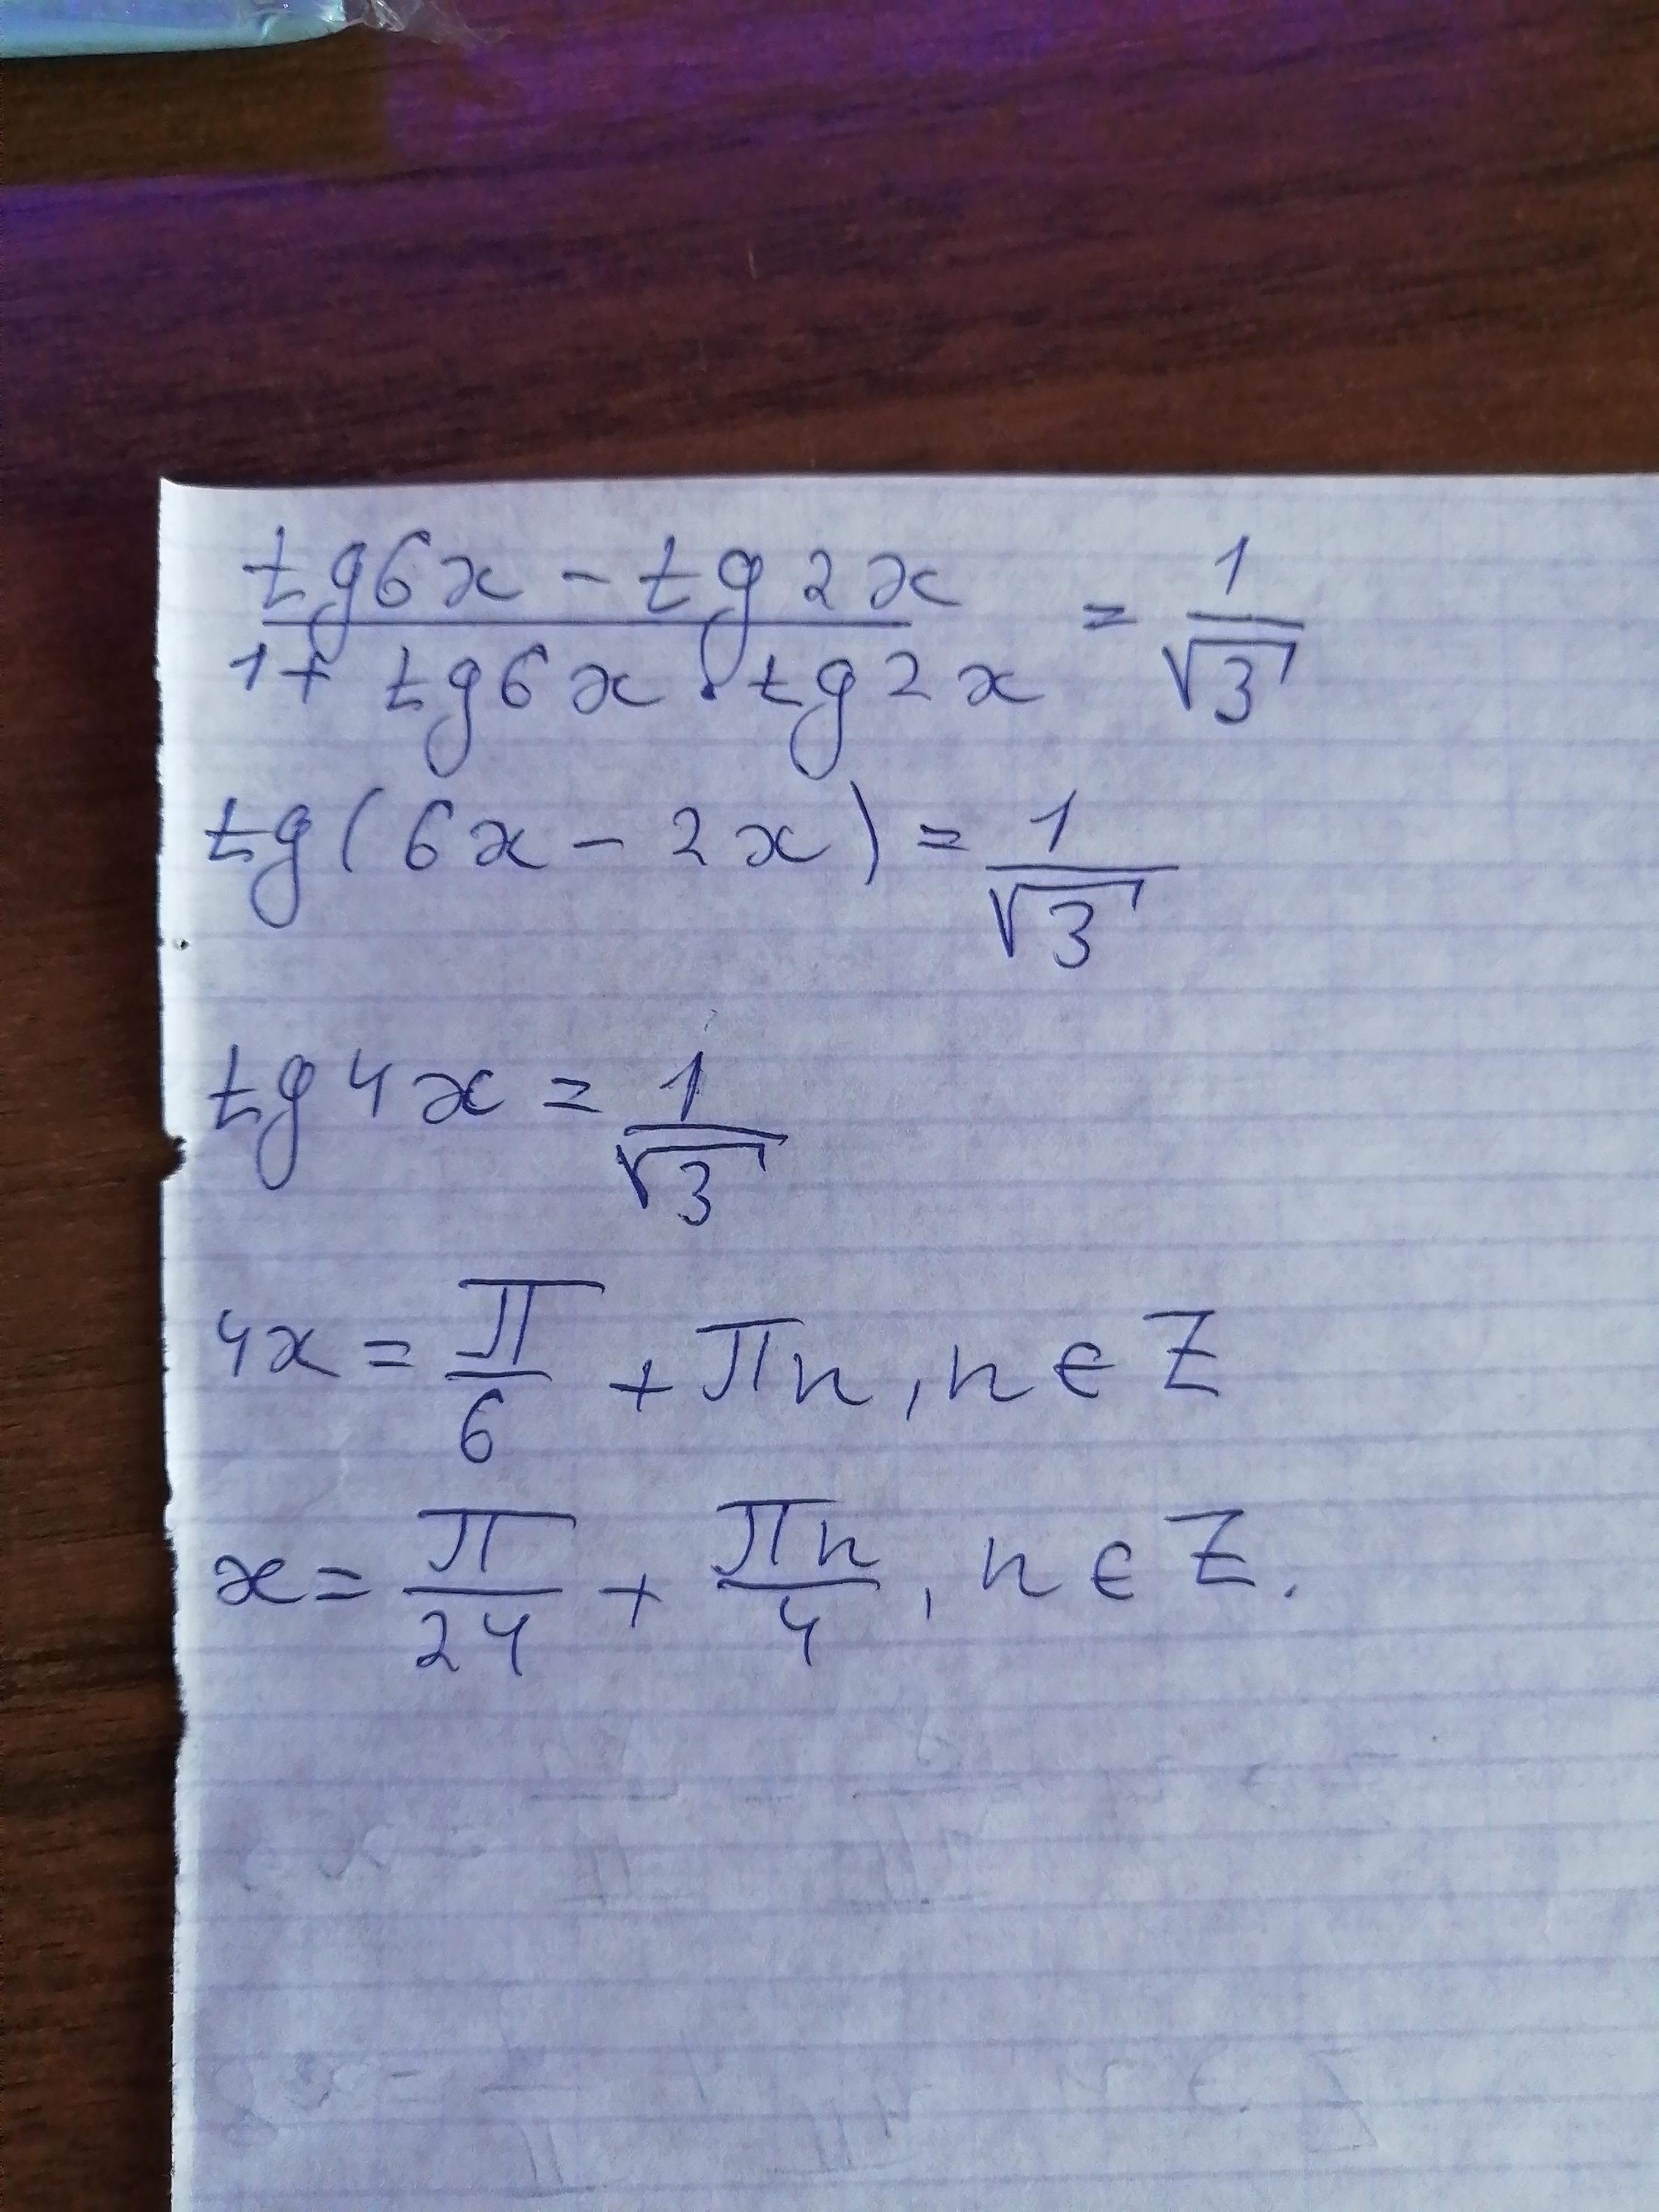 tg6x - tg2x / 1 + tg6x · tg2x = 1/√3
tg(6x - 2x) = 1/√3
tg4x = 1/√3
4x = π/6 + πn, n ∈ Z
x = π/24 + πn/4, n ∈ Z.